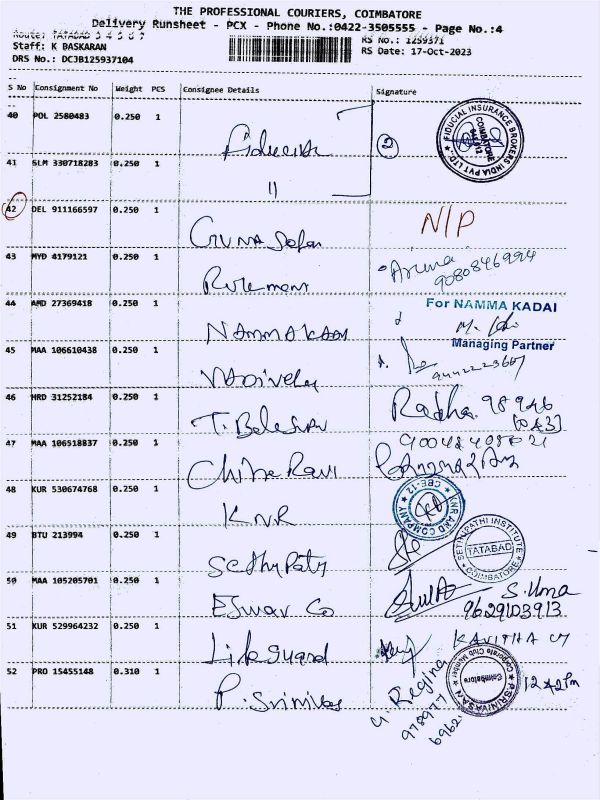 THE PROFESSIONAL COURIERS, COIMBATORE
Delivery Runsheet - PCX - Phone No.:0422-3505555 - Page No.:4
Route: TATABAD 3 4 5 6 7
RS No.: 1259371
Staff: K BASKARAN
RS Date: 17-Oct-2023
DRS No.: DCJB125937104
S No Consignment No Weight PCS Consignee Details Signature
40 POL 2580483 0.250 1
2
FIDUCIAL INSURANCE BROKERS INDIA PVT LTD. COIMBATORE
41 SLM 330718283 0.250 1 "
42 DEL 911166597 0.250 1 N/P
43 MYD 4179121 0.250 1 Aruna
9080846994
44 AMD 27369418 0.250 1 For NAMMA KADAI
Managing Partner
45 MAA 106610438 0.250 1 Vadivelu
46 HRD 31252184 0.250 1 Radha 98946
47 MAA 106518837 0.250 1 Chitra Ravi
48 KUR 530674768 0.250 1 KNR
KNR AND COMPANY CBE-12
49 BTU 213994 0.250 1 Sethupathy
SETHUPATHI INSTITUTE TATABAD COIMBATORE
50 MAA 105205701 0.250 1 Eswar Co S. Uma
9629103913
51 KUR 529964232 0.250 1 KAVITHA
52 PRO 15455148 0.310 1 P. Srinivas
G. Regina
978977
6962
P.SRINIVASAN Corporate Club Member Coimbatore
12.42 Pm